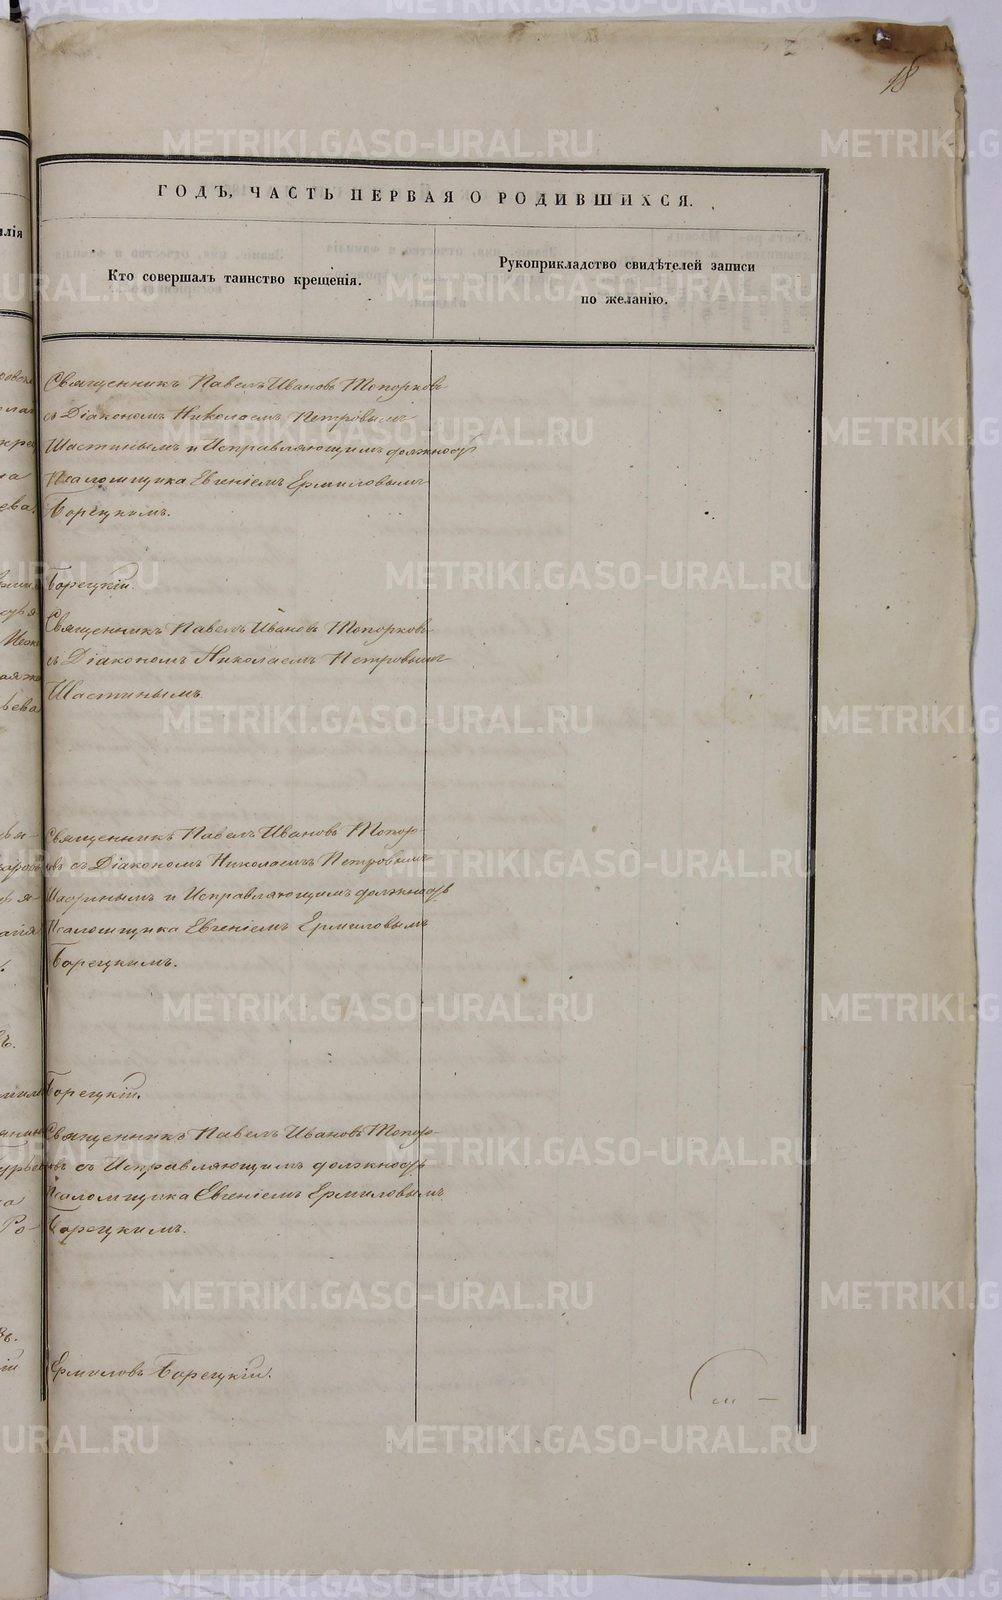 18
ГОДЪ, ЧАСТЬ ПЕРВАЯ О РОДИВШИХСЯ.
Кто совершалъ таинство крещенія.
Рукоприкладство свидѣтелей записи
по желанію.
Священникъ Павелъ Ивановъ Топорковъ
съ Діакономъ Николаемъ Петровымъ
Шастинымъ и Исправляющимъ должность
Псаломщика Евгеніемъ Ермиловымъ
Борецкимъ.
Борецкій.
Священникъ Павелъ Ивановъ Топорковъ
съ Діакономъ Николаемъ Петровымъ
Шастинымъ.
Священникъ Павелъ Ивановъ Топор-
овъ съ Діакономъ Николаемъ Петровымъ
Шастинымъ и Исправляющимъ должность
Псаломщика Евгеніемъ Ермиловымъ
Борецкимъ.
Борецкій.
Священникъ Павелъ Ивановъ Топор-
овъ съ Исправляющимъ должность
Псаломщика Евгеніемъ Ермиловымъ
Борецкимъ.
Ермиловъ Борецкій.
METRIKI.GASO-URAL.RU